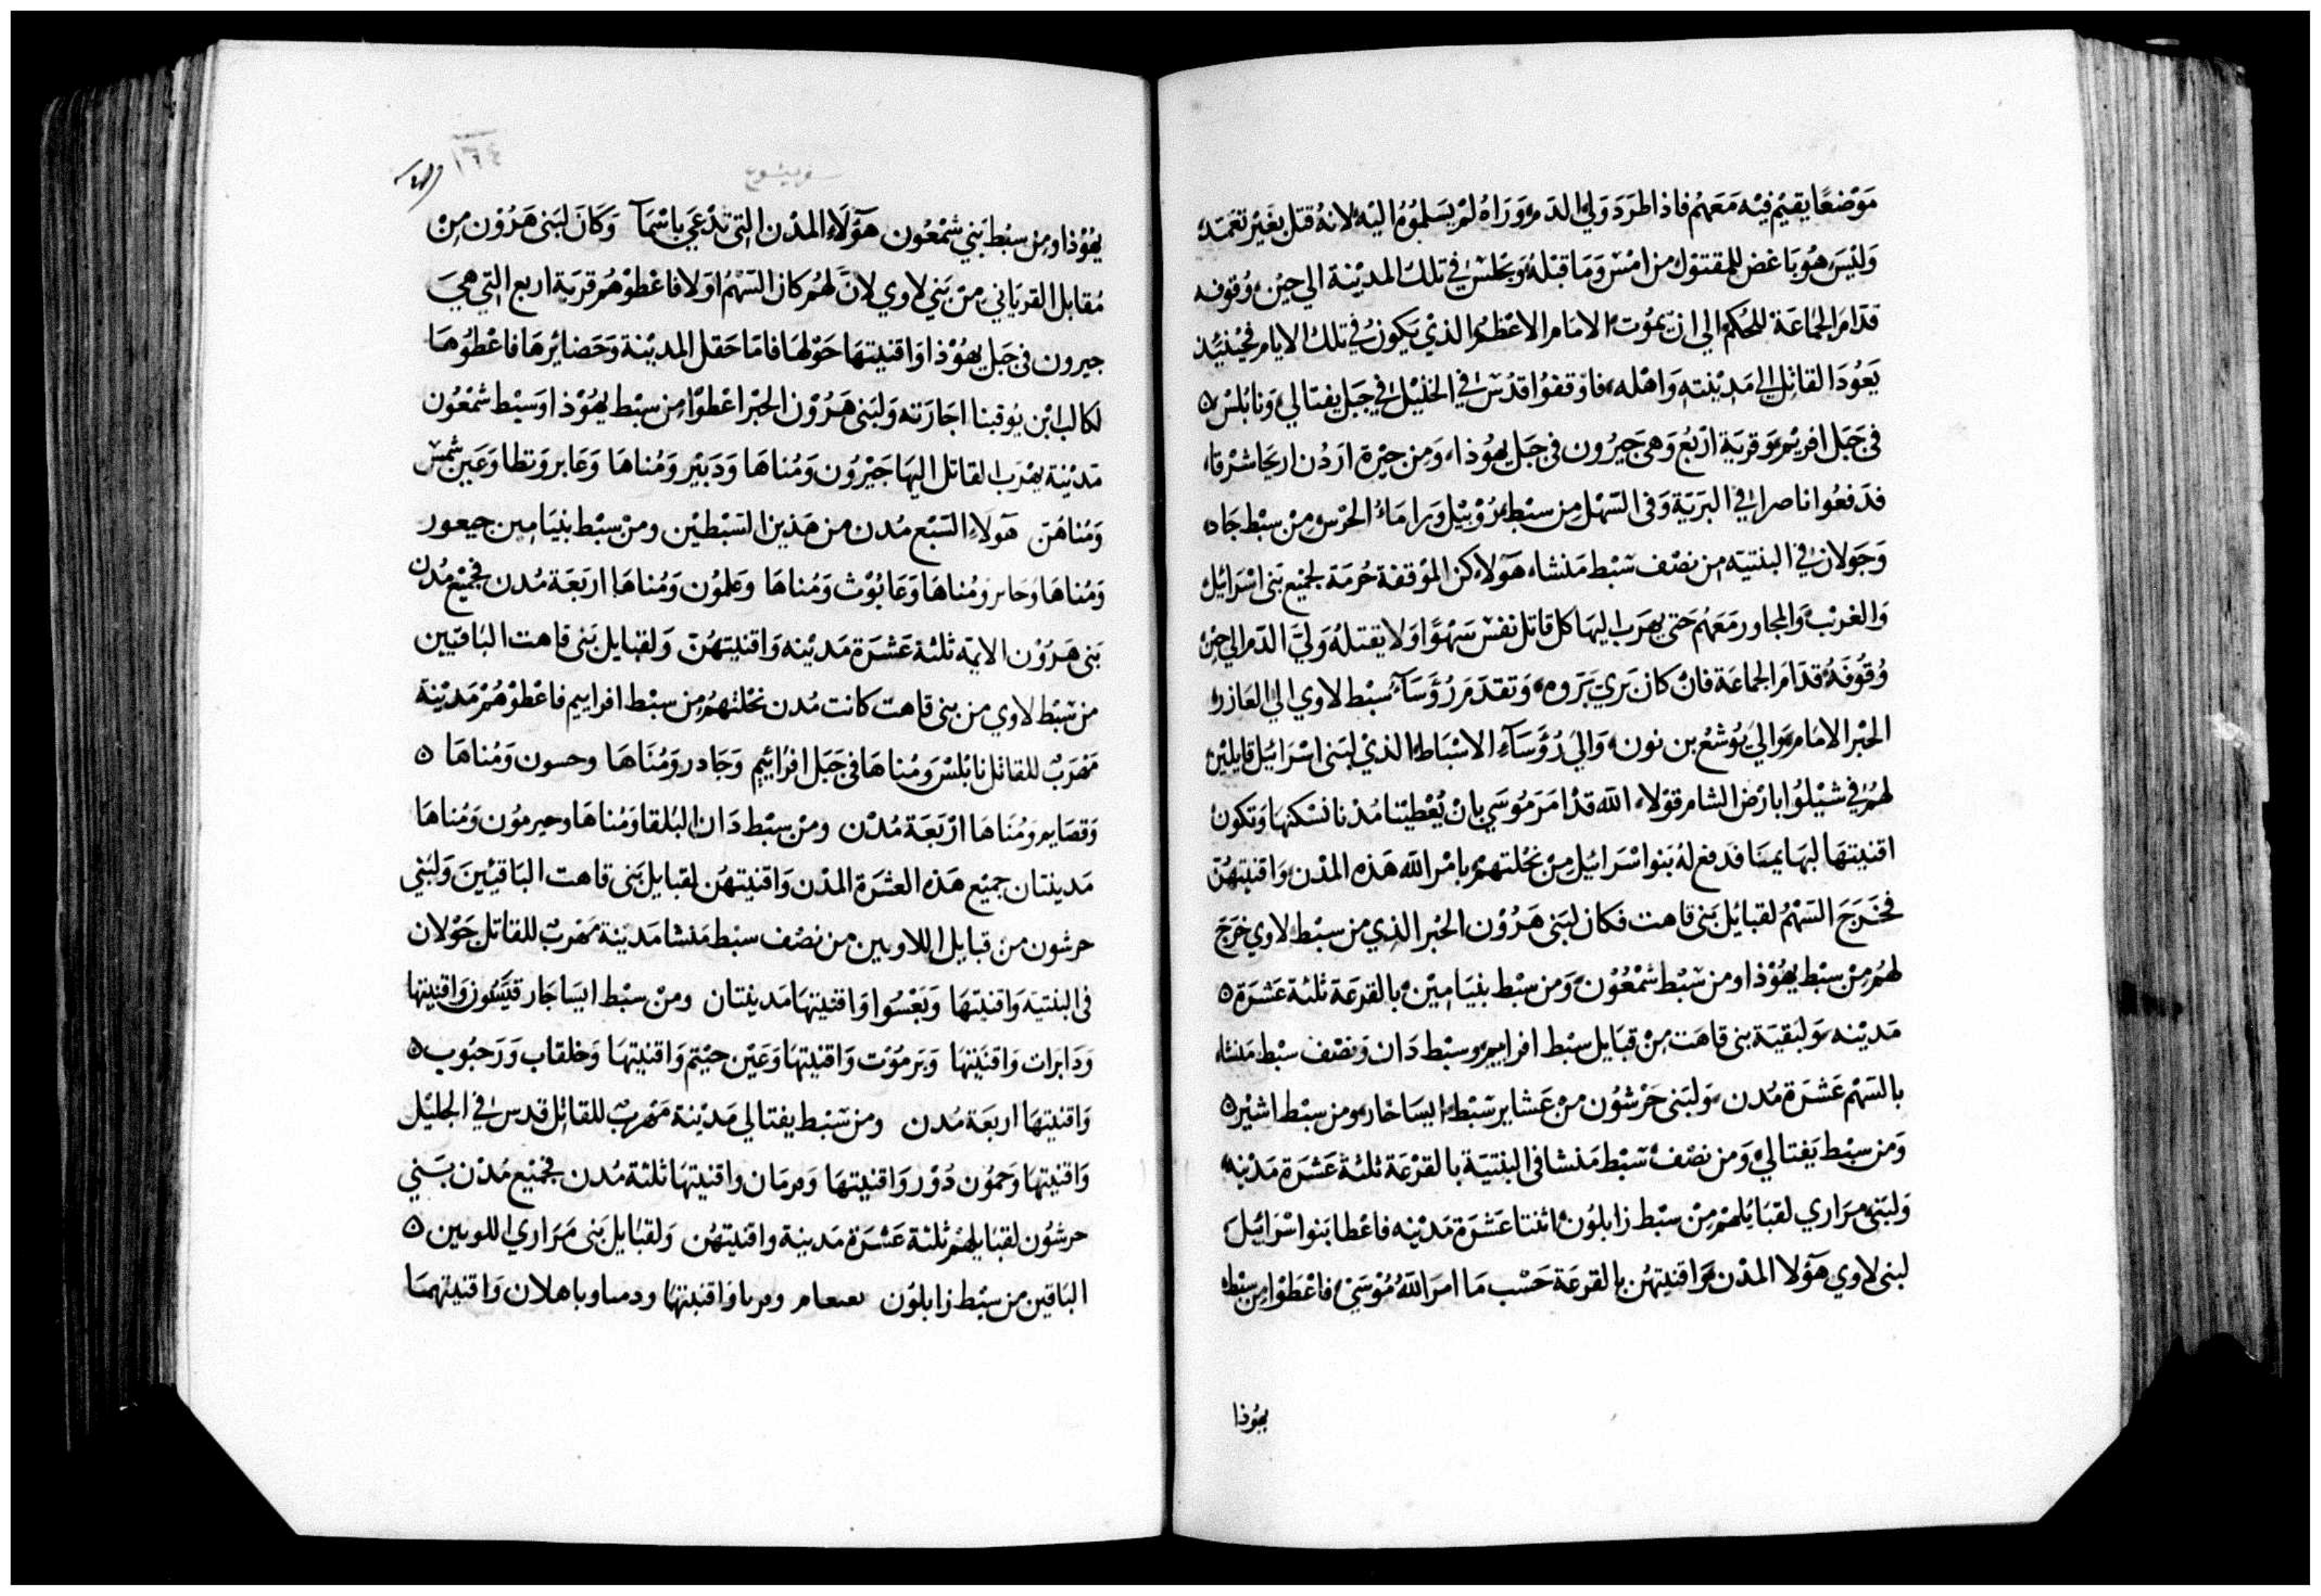 مَوْضعًا يقيْم فيْه مَعَهم فاذا طرَد وَلي الدَم وَرَاهُ لمْ يسَلموُهُ اليْه لانهُ قتل بغَيْر تعَمد
وَليْسَ هُوَ باغض للمقتوْل من امْس وَمَا قبْلهُ وَيجلسْ في تلك المديْنة الي حيْن وُقوفه
قدّامَ الجمَاعَة للحُكم الي ان يموُت الامَام الاعْظمُ الذيْ يَكونُ في تلكَ الايام فحيْنئيذ
يَعُوْد القاتل الي مَديْنتهِ وَاهْله فاوْقفوُا قدُسْ في الخليْل في جَبَل يفتالي وَنابْلسْ
في جَبَل افريْم وَقريَة ارْبعُ وَهي جَيرُون في جَبل يهُوْذا وَمن جيْرة ارْدُن اريْحَا شرْقا
فدَفعُوا ناصرا في البَريّة وَفي السّهْل مِن سبْط رُوْبيْل وَرامَاءُ الحَرْس مِنْ سبْط جَاد
وَجَولان في البثنيه مِن نصْف سَبْط مَنشا هَؤلاء كن الموْقفة حُرمَة لجميْع بَني اسْرَائيل
وَالغريْب وَالمجاور مَعَهُم حَتي يهرَب اليهَا كل قاتل نفسْ سَهْوًا وَلا يقتلهُ وَليَّ الدّم الي حِيْن
وُقوُفهُ قدّامَ الجماعَة فانْ كان بَري بَروه وَتقدّمَ رُؤَسَآء سبْط لاوي الي العَازر
الحبْر الامَام وَالي يوُشعُ بن نون وَاليَ رُؤَسَآءِ الاسْبَاط الذيْ لبَني اسْرَائيْل قايليْن
لهُمْ في شيْلوُا بارْض الشام قوْلاء الله قدْ امَرَ مُوسَي بانْ يُعْطيْنا مُدْنا نسْكنهَا وَتكون
اقنيتهَا لبهَايمنا فدَفع لهُ بَنوا اسْرَائيل مِنْ نحْلتهِمْ بامْر الله هَذه المدْن وَاقنيتهُنّ
فخرَجَ السَهْمُ لقبائيل بَني قاهت فكان لبَني هَرُوْن الحبْر الذي من سبْط لاوي خرَجَ
لهُم مِنْ سبْط يهُوْذا ومن سَبْط شمْعُوْن وَمن سبْط بنيَامِيْن بالقرعَة ثلثة عَشرَة
مَديْنه وَلبَقيَة بني قاهَت مِنْ قبَايل سبْط افراييم وسبْط دَان وَنصْف سبْط مَنشا
بالسّهْم عَشرَة مُدن وَلبَني جَرْشوُن منْ عَشاير سَبْط ايسَاخار ومن سبْط اشيْر
وَمن سبْط يَفتالي وَمن نصْف سَبْط مَنشا في البثنيَة بالقرْعَة ثلثة عَشرَة مَديْنه
وَلبَني مرَاري لقبَايُلهمْ مِنْ سبْط زابلوُن اثنتا عَشرَة مَديْنه فاعْطا بَنوا اسْرَائيْلَ
لبَني لاوي هَؤلا المدْن وَاقنيتهُن بالقرعَة حَسْب مَا امرَ اللهُ مُوْسَيْ فاعْطوْا مِن سبْط
يهُوذا
سفر يشوع
١٦٤
يهُوْذا ومِن سبْط بَني شمْعُون هَؤلَاء المدْن التي تدْعَي باسْمَا وَكانَ لبَني هَرُوْن مِنْ
مُقابل القرياني مِنْ بَني لاوي لانّ لهُم كان السّهْمُ اوَلا فاعْطوْهُم قريَة اربع التي هيَ
جيرون في جَبل يهُوْذا وَاقنيتهَا حَوْلهَا فامّا حَقل المديْنة وَحَضائرهَا فاعْطُوهَا
لكالب ابْن يوُقينا اجَازته وَلبَني هَرُوْن الحبْر اعْطوْا مِن سبْط يهُوْذا وَسبْط شمْعُون
مَديْنة يهْرَب القاتل اليهَا جَيْرُون وَمُناهَا وَدَبيْر وَمُناهَا وَعَابر وَنطا وَعَين شمسْ
وَمُناهُنّ هَؤلاء السّبْع مُدن من هَذيْن السبْطيْن ومنْ سبْط بنيَامِين جيعور
وَمُناهَا وَحابر ومُناهَا وَعَابُوْث وَمُناهَا وَعلمُون وَمُناهَا اربَعَة مُدن فجميْع مُدن
بَني هَرُوْن الايمّه ثلثة عَشرَة مَديْنه وَاقنيتهُنّ وَلقبايل بَني قاهت البَاقيين
من سَبْط لاوي من بني قاهت كانت مُدن نحْلتهُمْ مِن سبْط افراييم فاعْطوْهُمْ مَديْنة
مَهرَبٌ للقاتل نابْلسْ وَمُناهَا في جَبَل افرَاييم وَجَادر وَمُنَاهَا وحسون وَمُناهَا
وَقصَايم وَمُنَاهَا ارْبَعَة مُدْن ومنْ سبْط دَان البُلقا وَمُناهَا وحيرموُن وَمُناهَا
مَدينتان جميْع هَذه العشرَة المدْن وَاقنيتهُن لقبايل بَني قاهت البَاقيْينَ وَلبَني
حرشون من قبايل اللاويين من نصْف سبْط مَنشا مَديْنة مَهْربٌ للقاتل جَوْلان
في البثنيَة وَاقنيتهَا وَبَعْسُوا وَاقنيتهَا مَدينتان ومنْ سبْط ايسَاجَار قيّسوُن وَاقنيتها
وَدَابرات وَاقنَيتها وَبَرموَت وَاقنيتهَا وَعَيْن جنيْم وَاقنيتهَا وَخلقاب وَرَحبُوب
وَاقنيتهَا اربعَة مُدن ومنْ سَبْط يفتالي مَديْنة مَهْربٌ للقاتل قدس في الجليْل
وَاقنيتهَا وَحَمُوْن دُوْر وَاقنيتهَا وَمرمَان واقنيتهَا ثلثة مُدن فجميْع مُدْن بَني
حرشوُن لقبَايلهُم ثلثة عَشرَة مَدينة واقنيتهُن وَلقبَايل بَني مَرَاري اللويين
البَاقين من سبْط زابلوُن وَاقنيتهَا وباهلان وَاقنيتهمَا